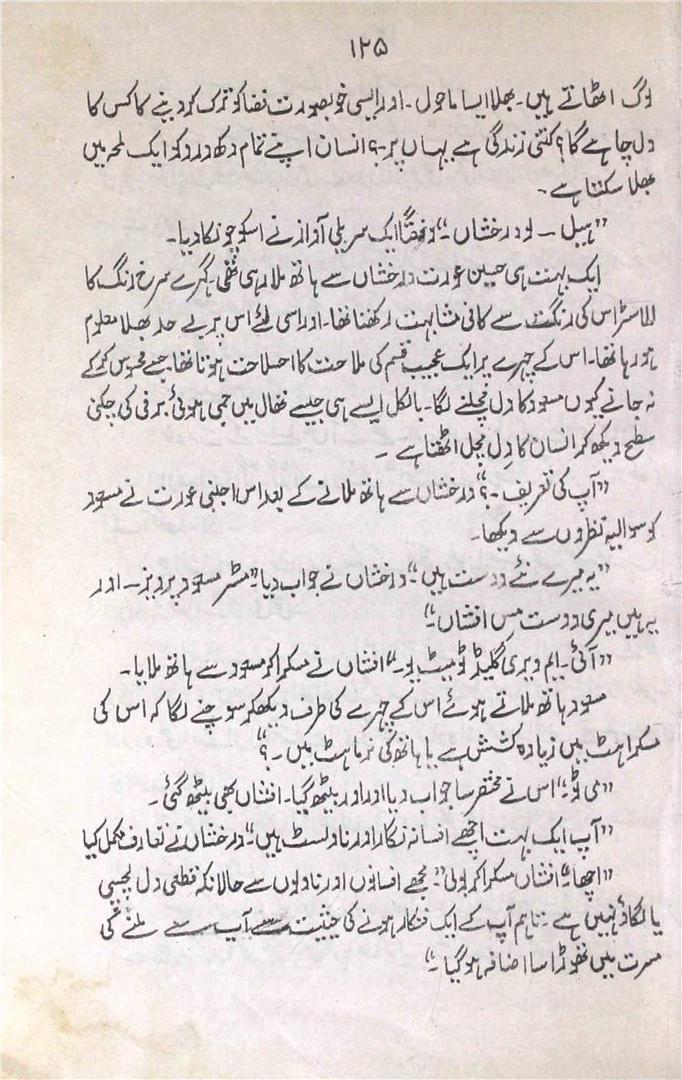 ۱۲۵
لوگ اٹھاتے ہیں۔ بھلا ایسا ماحول۔ اور ایسی خوبصورت فضا کو ترک کر دینے کا کس کا
دل چاہے گا؟ کتنی زندگی ہے یہاں پر۔؟ انسان اپنے تمام دکھ درد کو ایک لمحہ میں
بھلا سکتا ہے۔
”ہیل۔ لو درخشاں۔“ دفعتاً ایک سریلی آواز نے اسکو چونکا دیا۔
ایک بہت ہی حسین عورت درخشاں سے ہاتھ ملا رہی تھی۔ گہرے سرخ رنگ کا
الاسٹر اس کی رنگت سے کافی مشابہت رکھتا تھا۔ اور اسی لئے اس پر بے حد بھلا معلوم
ہو رہا تھا۔ اس کے چہرے پر ایک عجیب قسم کی ملاحت کا احساس ہوتا تھا جسے محسوس کر کے
نہ جانے کیوں مسعود کا دل مچلنے لگا۔ بالکل ایسے ہی جیسے تھال میں جمی ہوئی برفی کی چکنی
سطح دیکھ کر انسان کا دِل مچل اٹھتا ہے۔
”آپ کی تعریف۔؟“ درخشاں سے ہاتھ ملانے کے بعد اس اجنبی عورت نے مسعود
کو سوالیہ نظروں سے دیکھا۔
”یہ میرے نئے دوست ہیں۔“ درخشاں نے جواب دیا۔ ”مسٹر مسعود پرویز۔ اور
یہ ہیں میری دوست مِس افشاں۔“
”آئی۔ ایم ویری گلیڈ ٹو میٹ یو۔“ افشاں نے مسکرا کر مسعود سے ہاتھ ملایا۔
مسعود ہاتھ ملاتے ہوئے اس کے چہرے کی طرف دیکھکر سوچنے لگا کہ اس کی
مسکراہٹ میں زیادہ کشش ہے یا ہاتھ کی نرماہٹ میں۔؟“
”می ٹو۔“ اس نے مختصر سا جواب دیا اور اور بیٹھ گیا۔ افشاں بھی بیٹھ گئی۔
”آپ ایک بہت اچھے افسانہ نگار اور ناولسٹ ہیں۔“ درخشاں نے تعارف مکمل کیا
”اچھا۔“ افشاں مسکرا کر بولی۔ ”مجھے افسانوں اور ناولوں سے حالانکہ قطعی دل چسپی
یا لگاؤ نہیں ہے۔ تاہم آپ کے ایک فنکار ہونے کی حیثیت سے آپ سے ملنے کی
مسرت میں تھوڑا سا اضافہ ہو گیا۔“